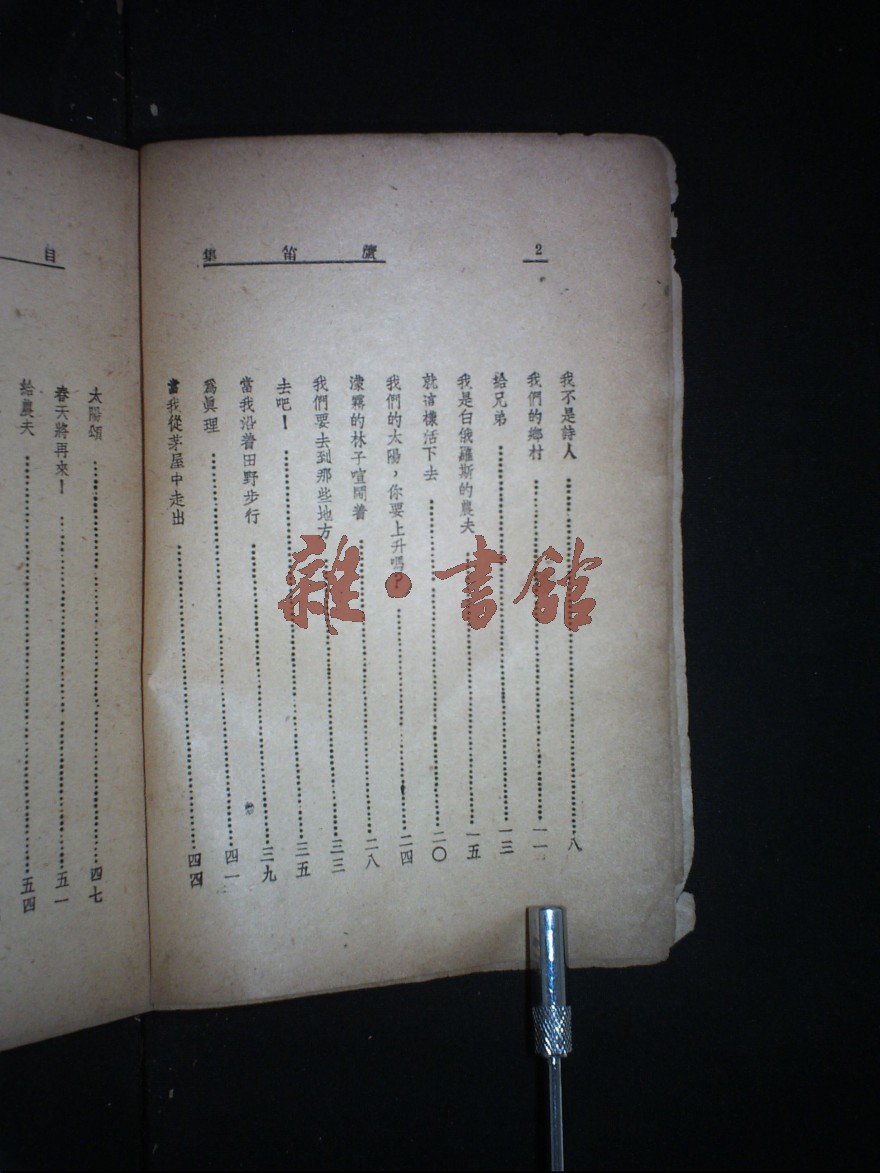 2
蘆笛集
我不是詩人……八
我們的鄉村……一一
給兄弟……一三
我是白俄羅斯的農夫……一五
就這樣活下去……二〇
我們的太陽，你要上升嗎？……二四
濛霧的林子喧鬧着……二八
我們要去到那些地方……三三
去吧！……三五
當我沿着田野步行……三九
爲眞理……四一
當我從茅屋中走出……四四
目
太陽頌……四七
春天將再來！……五一
給農夫……五四
雜·書館